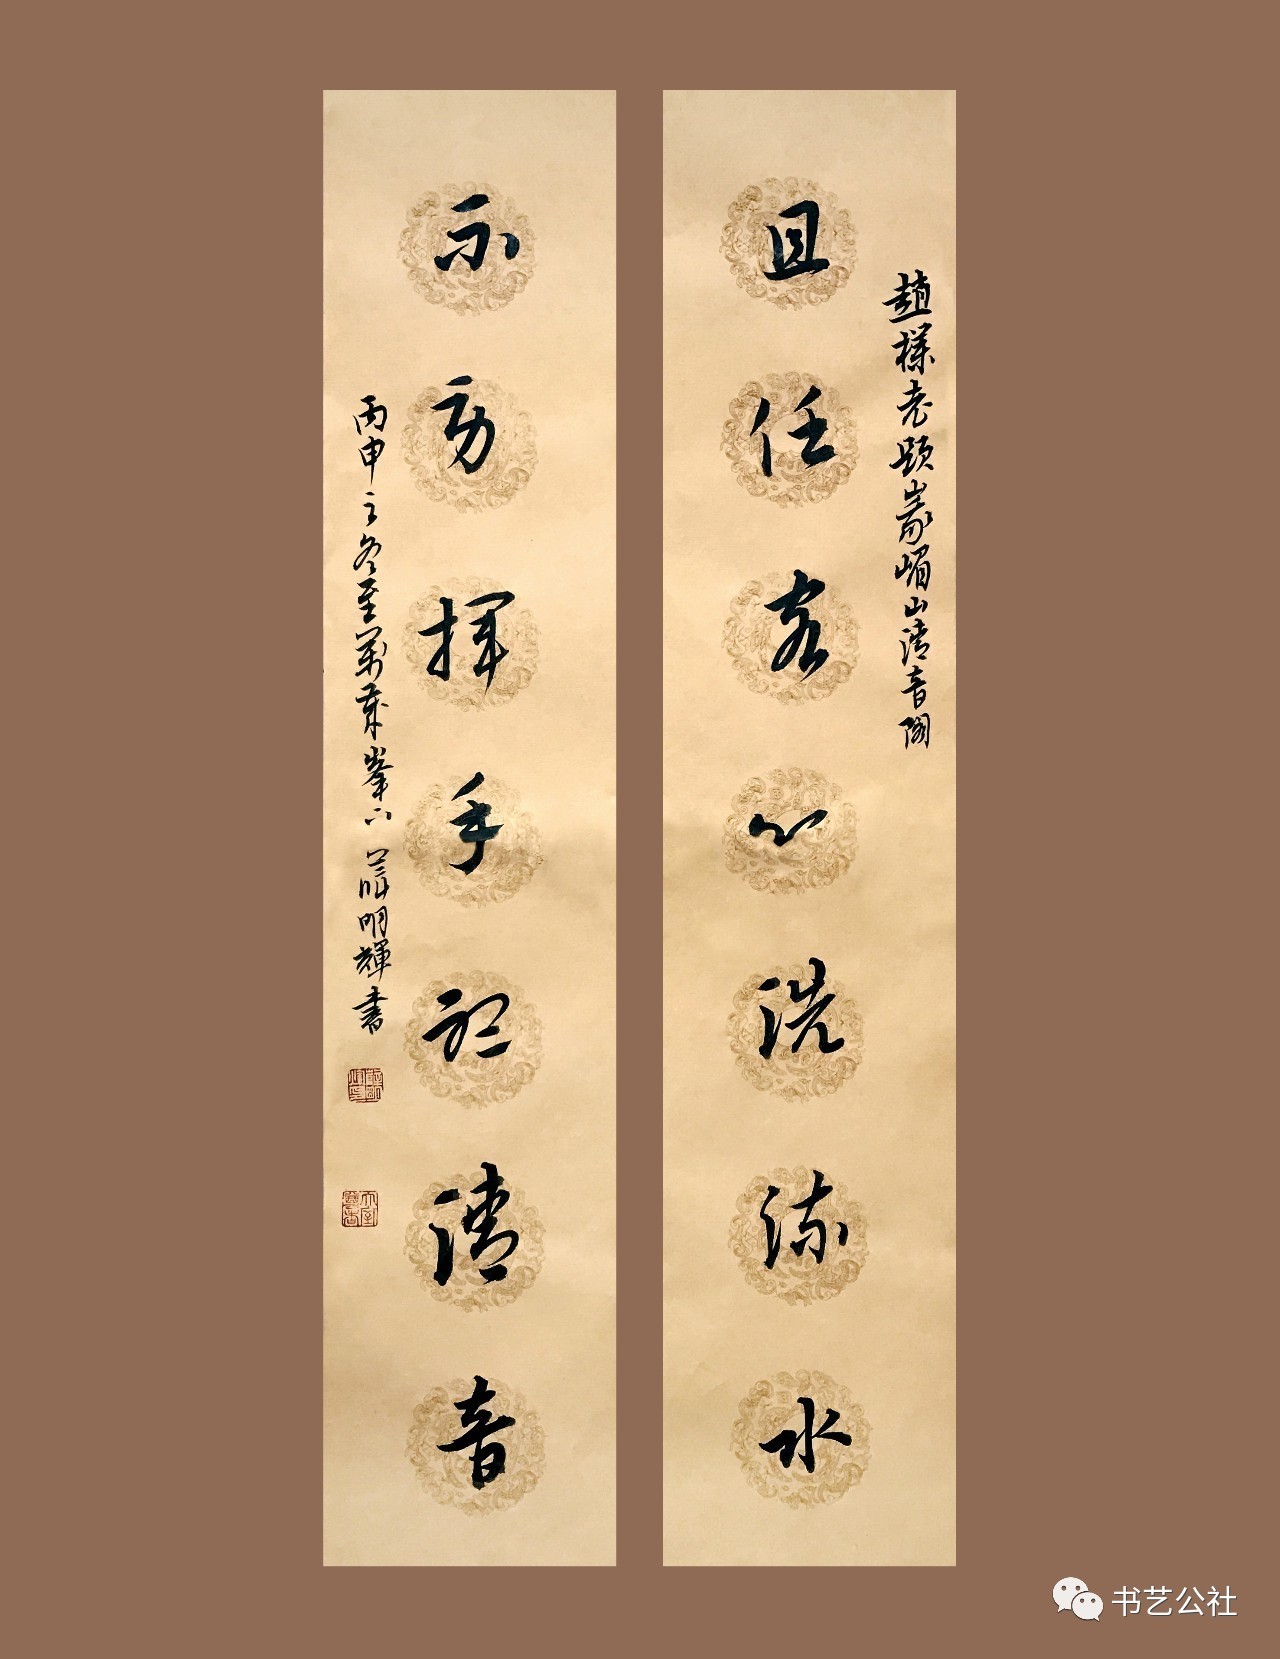 趙樸老題峨嵋山清音閣
且任客心洗流水
不勞揮手聽清音
丙申之冬至萬歲峯下 明輝書
书艺公社